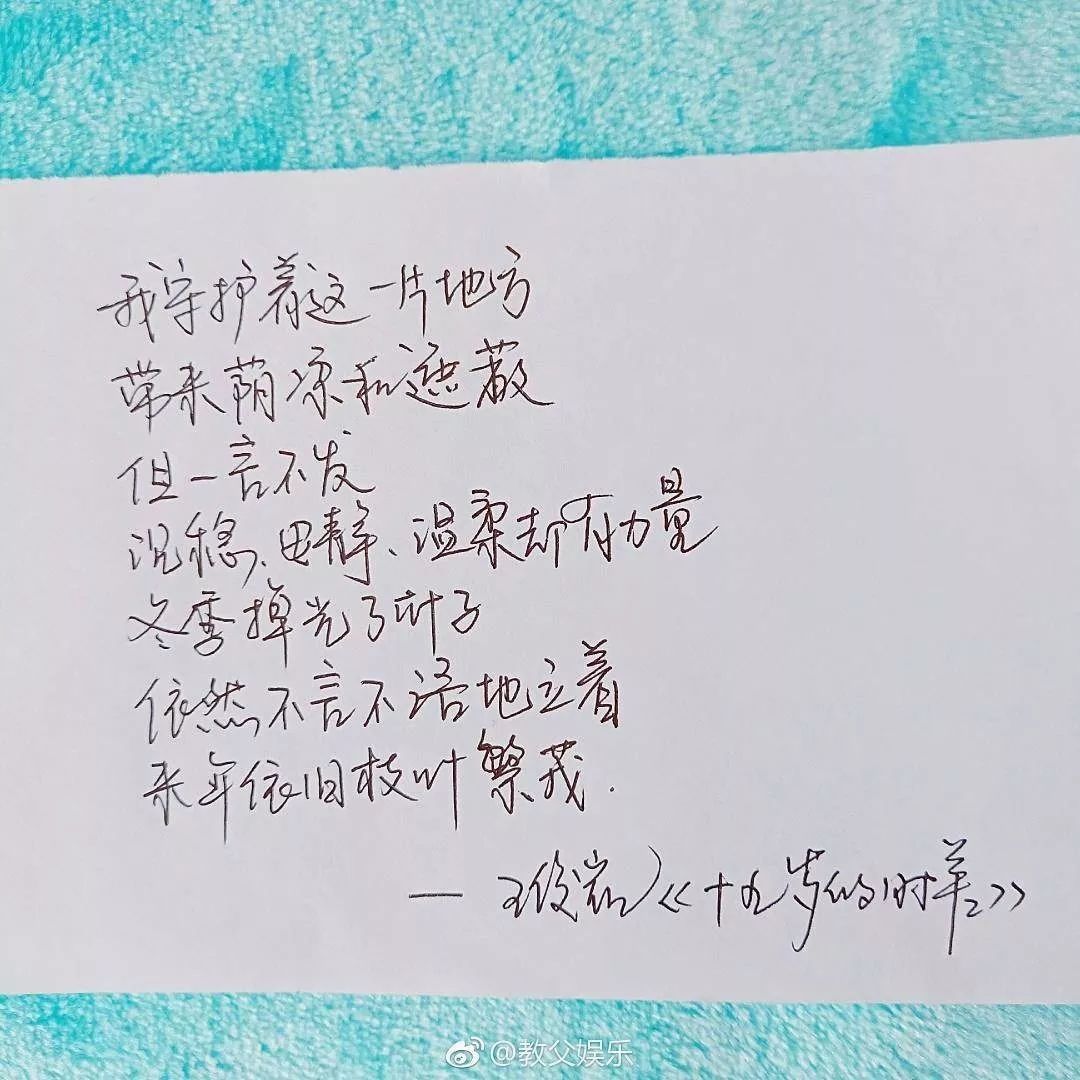 我守护着这一片地方
带来荫凉和遮蔽
但一言不发
沉稳、恬静、温柔却有力量
冬季掉光了叶子
依然不言不语地立着
来年依旧枝叶繁茂.
— 王俊凯《十九岁的时差》
@教父娱乐